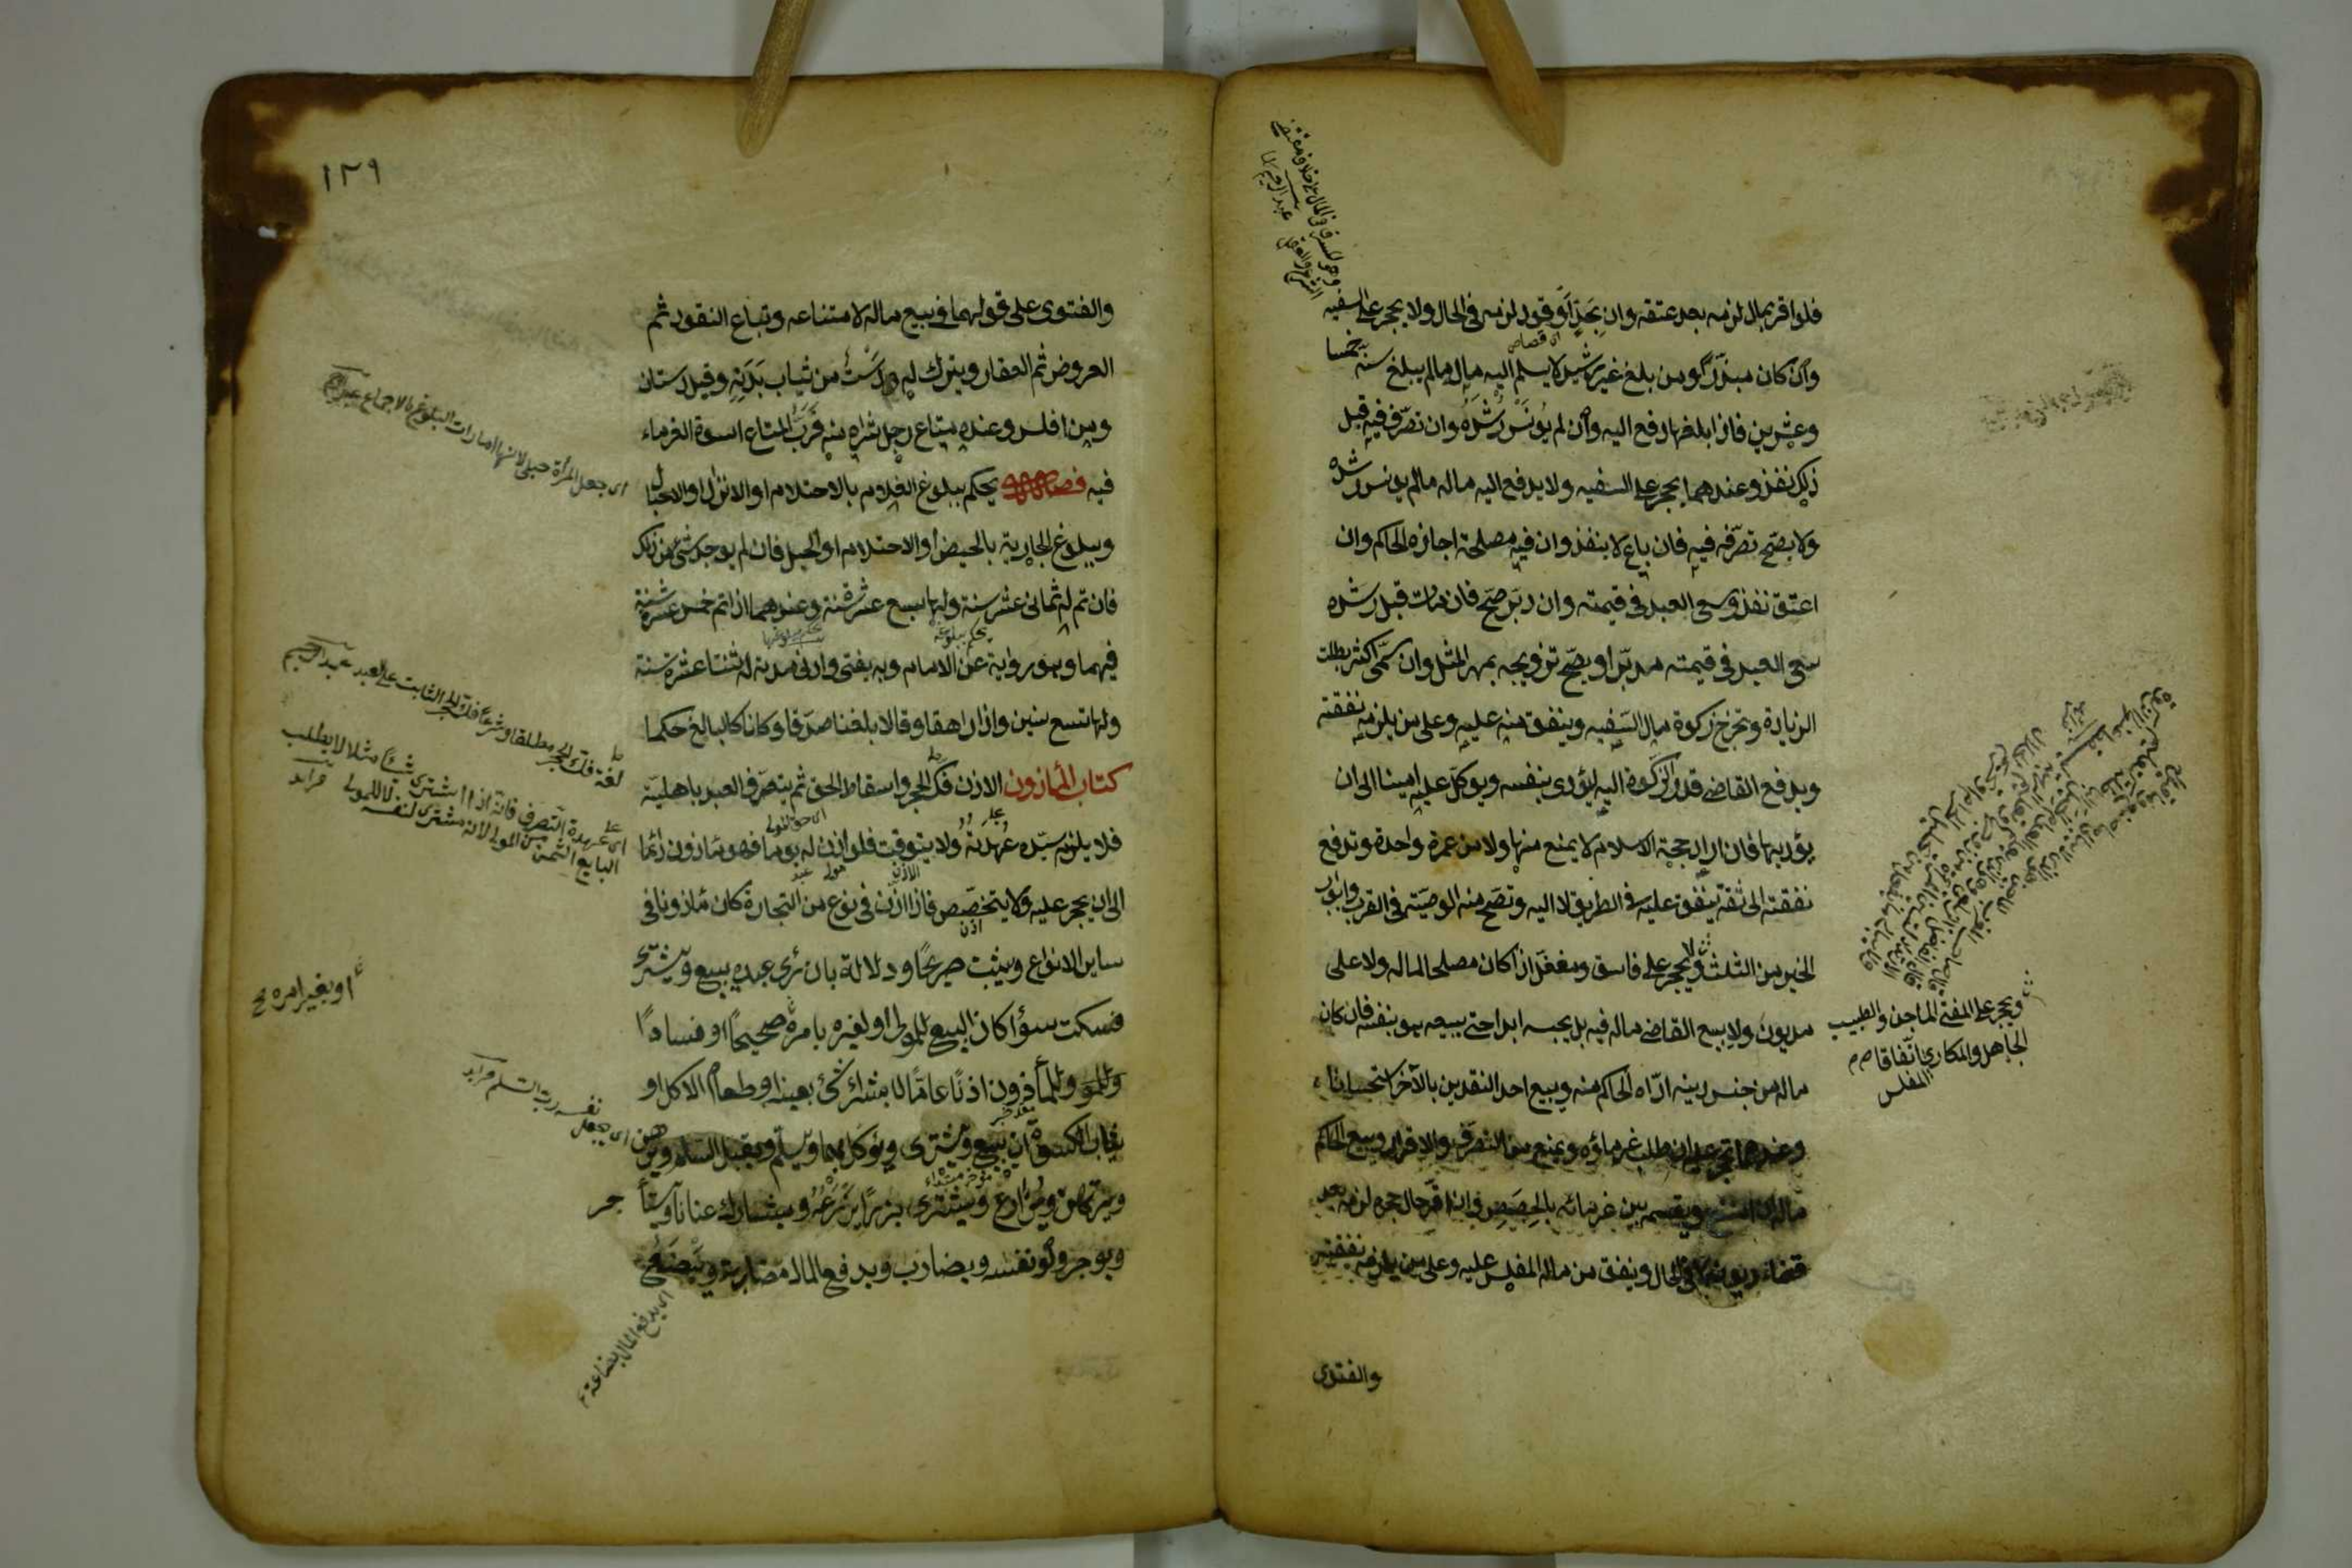 فلو اقر بمال لزمه بعد عتقه وان بحد او قود لزمه في الحال ولا يحجر على السفيه
اى قصاص
وان كان مبذرا ومن بلغ غير رشيد لا يسلم اليه ماله ما لم يبلغ سنه خمسا
وعشرين فاذا بلغها دفع اليه وان لم يونس رشده وان تصرف فيه قبل
ذلك نفذ وعندهما يحجر على السفيه ولا يدفع اليه ماله مالم يونس رشده
ولا يصح تصرفه فيه فان باع لا ينفذ وان فيه مصلحة اجازه الحاكم وان
اعتق نفذ وسعى العبد في قيمته وان دبر صح فان مات قبل رشده
سعى العبد في قيمته مدبرا ويصح تزويجه بمهر المثل وان سمى اكثر بطلت
الزيادة وتخرج زكوة مال السفيه وينفق منه عليه وعلى من يلزمه نفقته
ويدفع القاضي قدر الزكوة اليه ليؤدى بنفسه ويوكل عليه امينا الى ان
يؤديها فان اراد حجة الاسلام لا يمنع منها ولا من عمرة واحدة وتدفع
نفقته الى ثقة ينفق عليه في الطريق لا اليه وتصح منه الوصية في القرب وابواب
الخير من الثلث ولا يحجر على فاسق ومغفل اذا كان مصلحا لماله ولا على
مديون ولا يبيع القاضي ماله فيه بل يحبسه ابدا حتى يبيعه هو بنفسه فان كان
ماله من جنس دينه اداه الحاكم منه ويبيع احد النقدين بالآخر استحسانا
وعندهما يحجر عليه ان طلب غرماؤه ويمنع من التصرف والاقرار ويبيع الحاكم
ماله ان امتنع ويقسمه بين غرمائه بالحصص وان اقر حال حجره لزمه بعد
قضاء ديونه لا في الحال وينفق من مال المفلس عليه وعلى من يلزمه نفقته
والفتوى
ويحجر على المفتى الماجن والطبيب
الجاهل والمكارى اتفاقا
المفلس
١٢٩
والفتوى على قولهما في بيع ماله لامتناعه وتباع النقود ثم
العروض ثم العقار ويترك له دست من ثياب بدنه وقيل دستان
ومن افلس وعنده متاع رجل شراه منه فرب المتاع اسوة الغرماء
فيه فصل يحكم ببلوغ الغلام بالاحتلام او الانزال او الاحبال
وببلوغ الجارية بالحيض او الاحتلام او الحبل فان لم يوجد شئ من ذلك
فان تم له ثمانى عشر سنة ولها سبع عشرة سنة وعندهما اذا تم خمس عشرة سنة
يحكم ببلوغه
فيهما وهو رواية عن الامام وبه يفتى وادنى مدته له اثنتا عشرة سنة
ولها تسع سنين واذا راهقا وقالا بلغنا صدقا وكانا كالبالغ حكما
كتاب المأذون الاذن فك الحجر واسقاط الحق ثم يتصرف العبد باهليته
اى حق المولى
فلا يلزم سيده عهدته ولا يتوقت فلو اذن له يوما فهو مأذون دائما
الى ان يحجر عليه ولا يتخصص فاذا اذن في نوع من التجارة كان مأذونا في
ساير الانواع ويثبت صريحا ودلالة بان رأى عبده يبيع ويشترى
فسكت سوا كان البيع للمولى او لغيره بامره صحيحا او فسادا
وللمأذون اذنا عاما لا بشراء شئ بعينه او طعام الاكل او
ثياب الكسوة ان يبيع ويشترى ويوكل بهما ويسلم ويقبل السلم ويرهن
ويرتهن ويزارع ويشترى بزرا يزرعه ويشارك عنانا ويستأجر
ويوجر ولو نفسه ويضارب ويدفع المال مضاربة ويبضع
اى جعل المرأة حبلى لانها امارات البلوغ بالاجماع
لغة فك الحجر مطلقا وشرعا فك الحجر الثابت على العبد عبد الرحيم
اى عهدة التصرف فانه اذا اشترى شيئا مثلا لا يطلب
البايع الثمن من المولى لانه مشترى لنفسه لا للمولى فرائد
او بغير امره
اى يجعل نفسه رب السلم فرائد
اى يدفع المال بضاعة